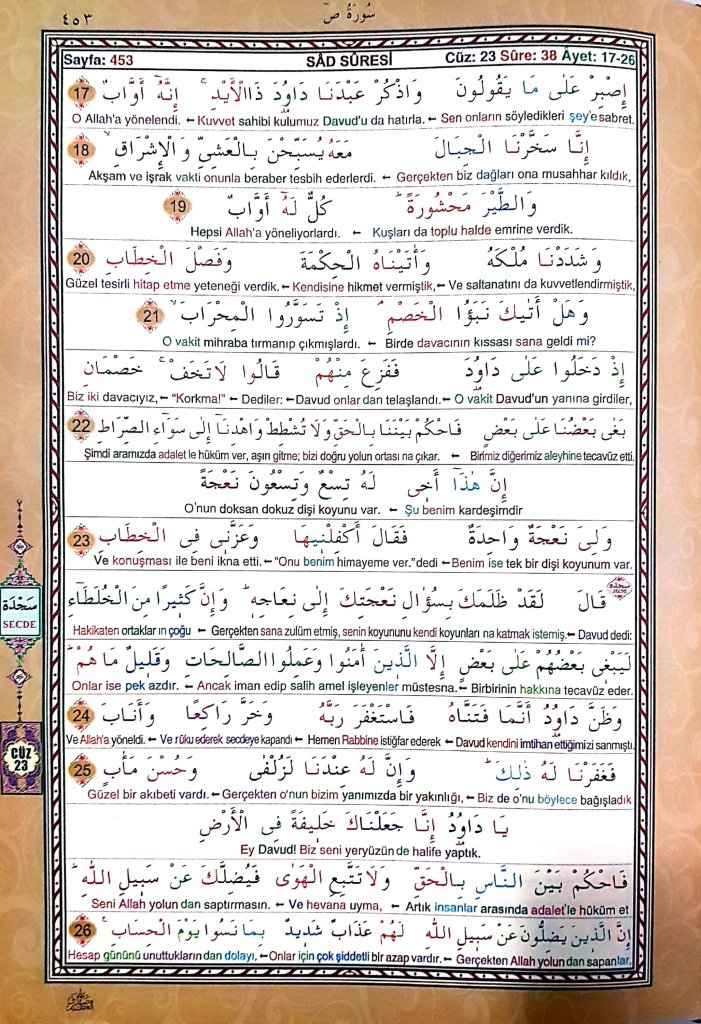 ٤٥٣ سُورَةُ صٓ
Sayfa: 453 SÂD SÛRESİ Cüz: 23 Sûre: 38 Âyet: 17-26
اِصْبِرْ عَلٰى مَا يَقُولُونَ وَاذْكُرْ عَبْدَنَا دَاوُ۫دَ ذَا الْاَيْدِۚ اِنَّهُٓ اَوَّابٌ 17
O Allah'a yönelendi. ← Kuvvet sahibi kulumuz Davud'u da hatırla. ← Sen onların söyledikleri şey'e sabret.
اِنَّا سَخَّرْنَا الْجِبَالَ مَعَهُ يُسَبِّحْنَ بِالْعَشِيِّ وَالْاِشْرَاقِۙ 18
Akşam ve işrak vakti onunla beraber tesbih ederlerdi. ← Gerçekten biz dağları ona musahhar kıldık,
وَالطَّيْرَ مَحْشُورَةًۜ كُلٌّ لَهُٓ اَوَّابٌ 19
Hepsi Allah'a yöneliyorlardı. ← Kuşları da toplu halde emrine verdik.
وَشَدَدْنَا مُلْكَهُ وَاٰتَيْنَاهُ الْحِكْمَةَ وَفَصْلَ الْخِطَابِ 20
Güzel tesirli hitap etme yeteneği verdik. ← Kendisine hikmet vermiştik, ← Ve saltanatını da kuvvetlendirmiştik,
وَهَلْ اَتٰيكَ نَبَؤُا الْخَصْمِۢ اِذْ تَسَوَّرُوا الْمِحْرَابَۙ 21
O vakit mihraba tırmanıp çıkmışlardı. ← Birde davacının kıssası sana geldi mi?
اِذْ دَخَلُوا عَلٰى دَاوُ۫دَ فَفَزِعَ مِنْهُمْ قَالُوا لَا تَخَفْۚ خَصْمَانِ
Biz iki davacıyız, ← "Korkma!" ← Dediler: ← Davud onlar dan telaşlandı. ← O vakit Davud'un yanına girdiler,
بَغٰى بَعْضُنَا عَلٰى بَعْضٍ فَاحْكُمْ بَيْنَنَا بِالْحَقِّ وَلَا تُشْطِطْ وَاهْدِنَٓا اِلٰى سَوَٓاءِ الصِّرَاطِ 22
Şimdi aramızda adalet le hüküm ver, aşırı gitme; bizi doğru yolun ortası na çıkar. ← Birimiz diğerimiz aleyhine tecavüz etti.
اِنَّ هٰذَٓا اَخٖي لَهُ تِسْعٌ وَتِسْعُونَ نَعْجَةً
O'nun doksan dokuz dişi koyunu var. ← Şu benim kardeşimdir
وَلِيَ نَعْجَةٌ وَاحِدَةٌ فَقَالَ اَكْفِلْنٖيهَا وَعَزَّنٖي فِي الْخِطَابِ 23
Ve konuşması ile beni ikna etti. ← "Onu benim himayeme ver." dedi ← Benim ise tek bir dişi koyunum var.
قَالَ لَقَدْ ظَلَمَكَ بِسُؤَالِ نَعْجَتِكَ اِلٰى نِعَاجِهٖۜ وَاِنَّ كَثٖيرًا مِنَ الْخُلَطَٓاءِ
Hakikaten ortaklar ın çoğu ← Gerçekten sana zulüm etmiş, senin koyununu kendi koyunları na katmak istemiş. ← Davud dedi:
لَيَبْغٖي بَعْضُهُمْ عَلٰى بَعْضٍ اِلَّا الَّذٖينَ اٰمَنُوا وَعَمِلُوا الصَّالِحَاتِ وَقَلٖيلٌ مَا هُمْۜ
Onlar ise pek azdır. ← Ancak iman edip salih amel işleyenler müstesna. ← Birbirinin hakkına tecavüz eder.
وَظَنَّ دَاوُ۫دُ اَنَّمَا فَتَنَّاهُ فَاسْتَغْفَرَ رَبَّهُ وَخَرَّ رَاكِعًا وَاَنَابَ 24
Ve Allah'a yöneldi. ← Ve rüku ederek secdeye kapandı ← Hemen Rabbine istiğfar ederek ← Davud kendini imtihan ettiğimizi sanmıştı
فَغَفَرْنَا لَهُ ذٰلِكَۜ وَاِنَّ لَهُ عِنْدَنَا لَزُلْفٰى وَحُسْنَ مَاٰبٍ 25
Güzel bir akıbeti vardı. ← Gerçekten o'nun bizim yanımızda bir yakınlığı, ← Biz de o'nu böylece bağışladık
يَا دَاوُ۫دُ اِنَّا جَعَلْنَاكَ خَلٖيفَةً فِي الْاَرْضِ
Ey Davud! Biz seni yeryüzün de halife yaptık.
فَاحْكُمْ بَيْنَ النَّاسِ بِالْحَقِّ وَلَا تَتَّبِعِ الْهَوٰى فَيُضِلَّكَ عَنْ سَبٖيلِ اللّٰهِۜ
Seni Allah yolun dan saptırmasın. ← Ve hevana uyma, ← Artık insanlar arasında adalet'le hüküm et
اِنَّ الَّذٖينَ يَضِلُّونَ عَنْ سَبٖيلِ اللّٰهِ لَهُمْ عَذَابٌ شَدٖيدٌ بِمَا نَسُوا يَوْمَ الْحِسَابِۚ 26
Hesap gününü unuttukların dan dolayı. ← Onlar için çok şiddetli bir azap vardır. ← Gerçekten Allah yolun dan sapanlar,
سَجْدَة
SECDE
CÜZ
23